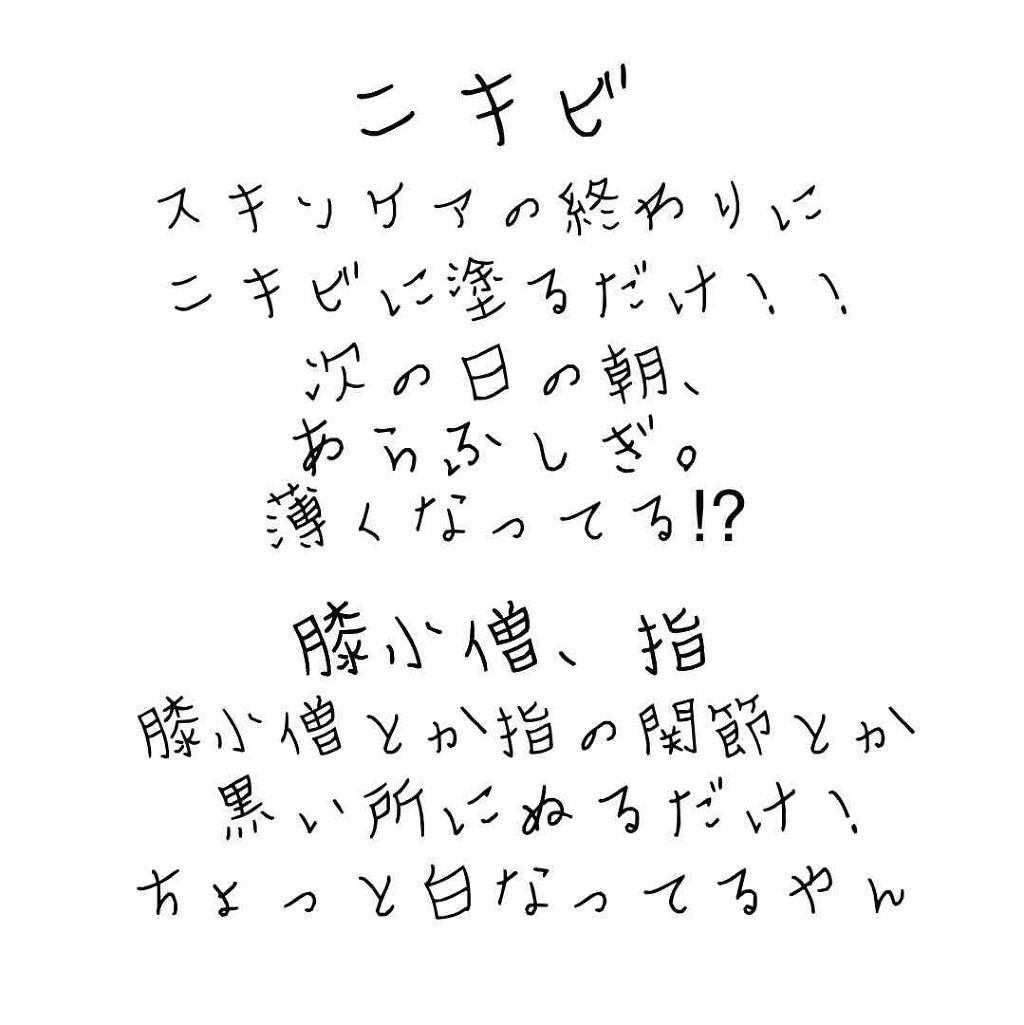 ニキビ
スキンケアの終わりに
ニキビに塗るだけ！！
次の日の朝、
あらふしぎ。
薄くなってる!?
膝小僧、指
膝小僧とか指の関節とか
黒い所にぬるだけ！
ちょっと白なってるやん